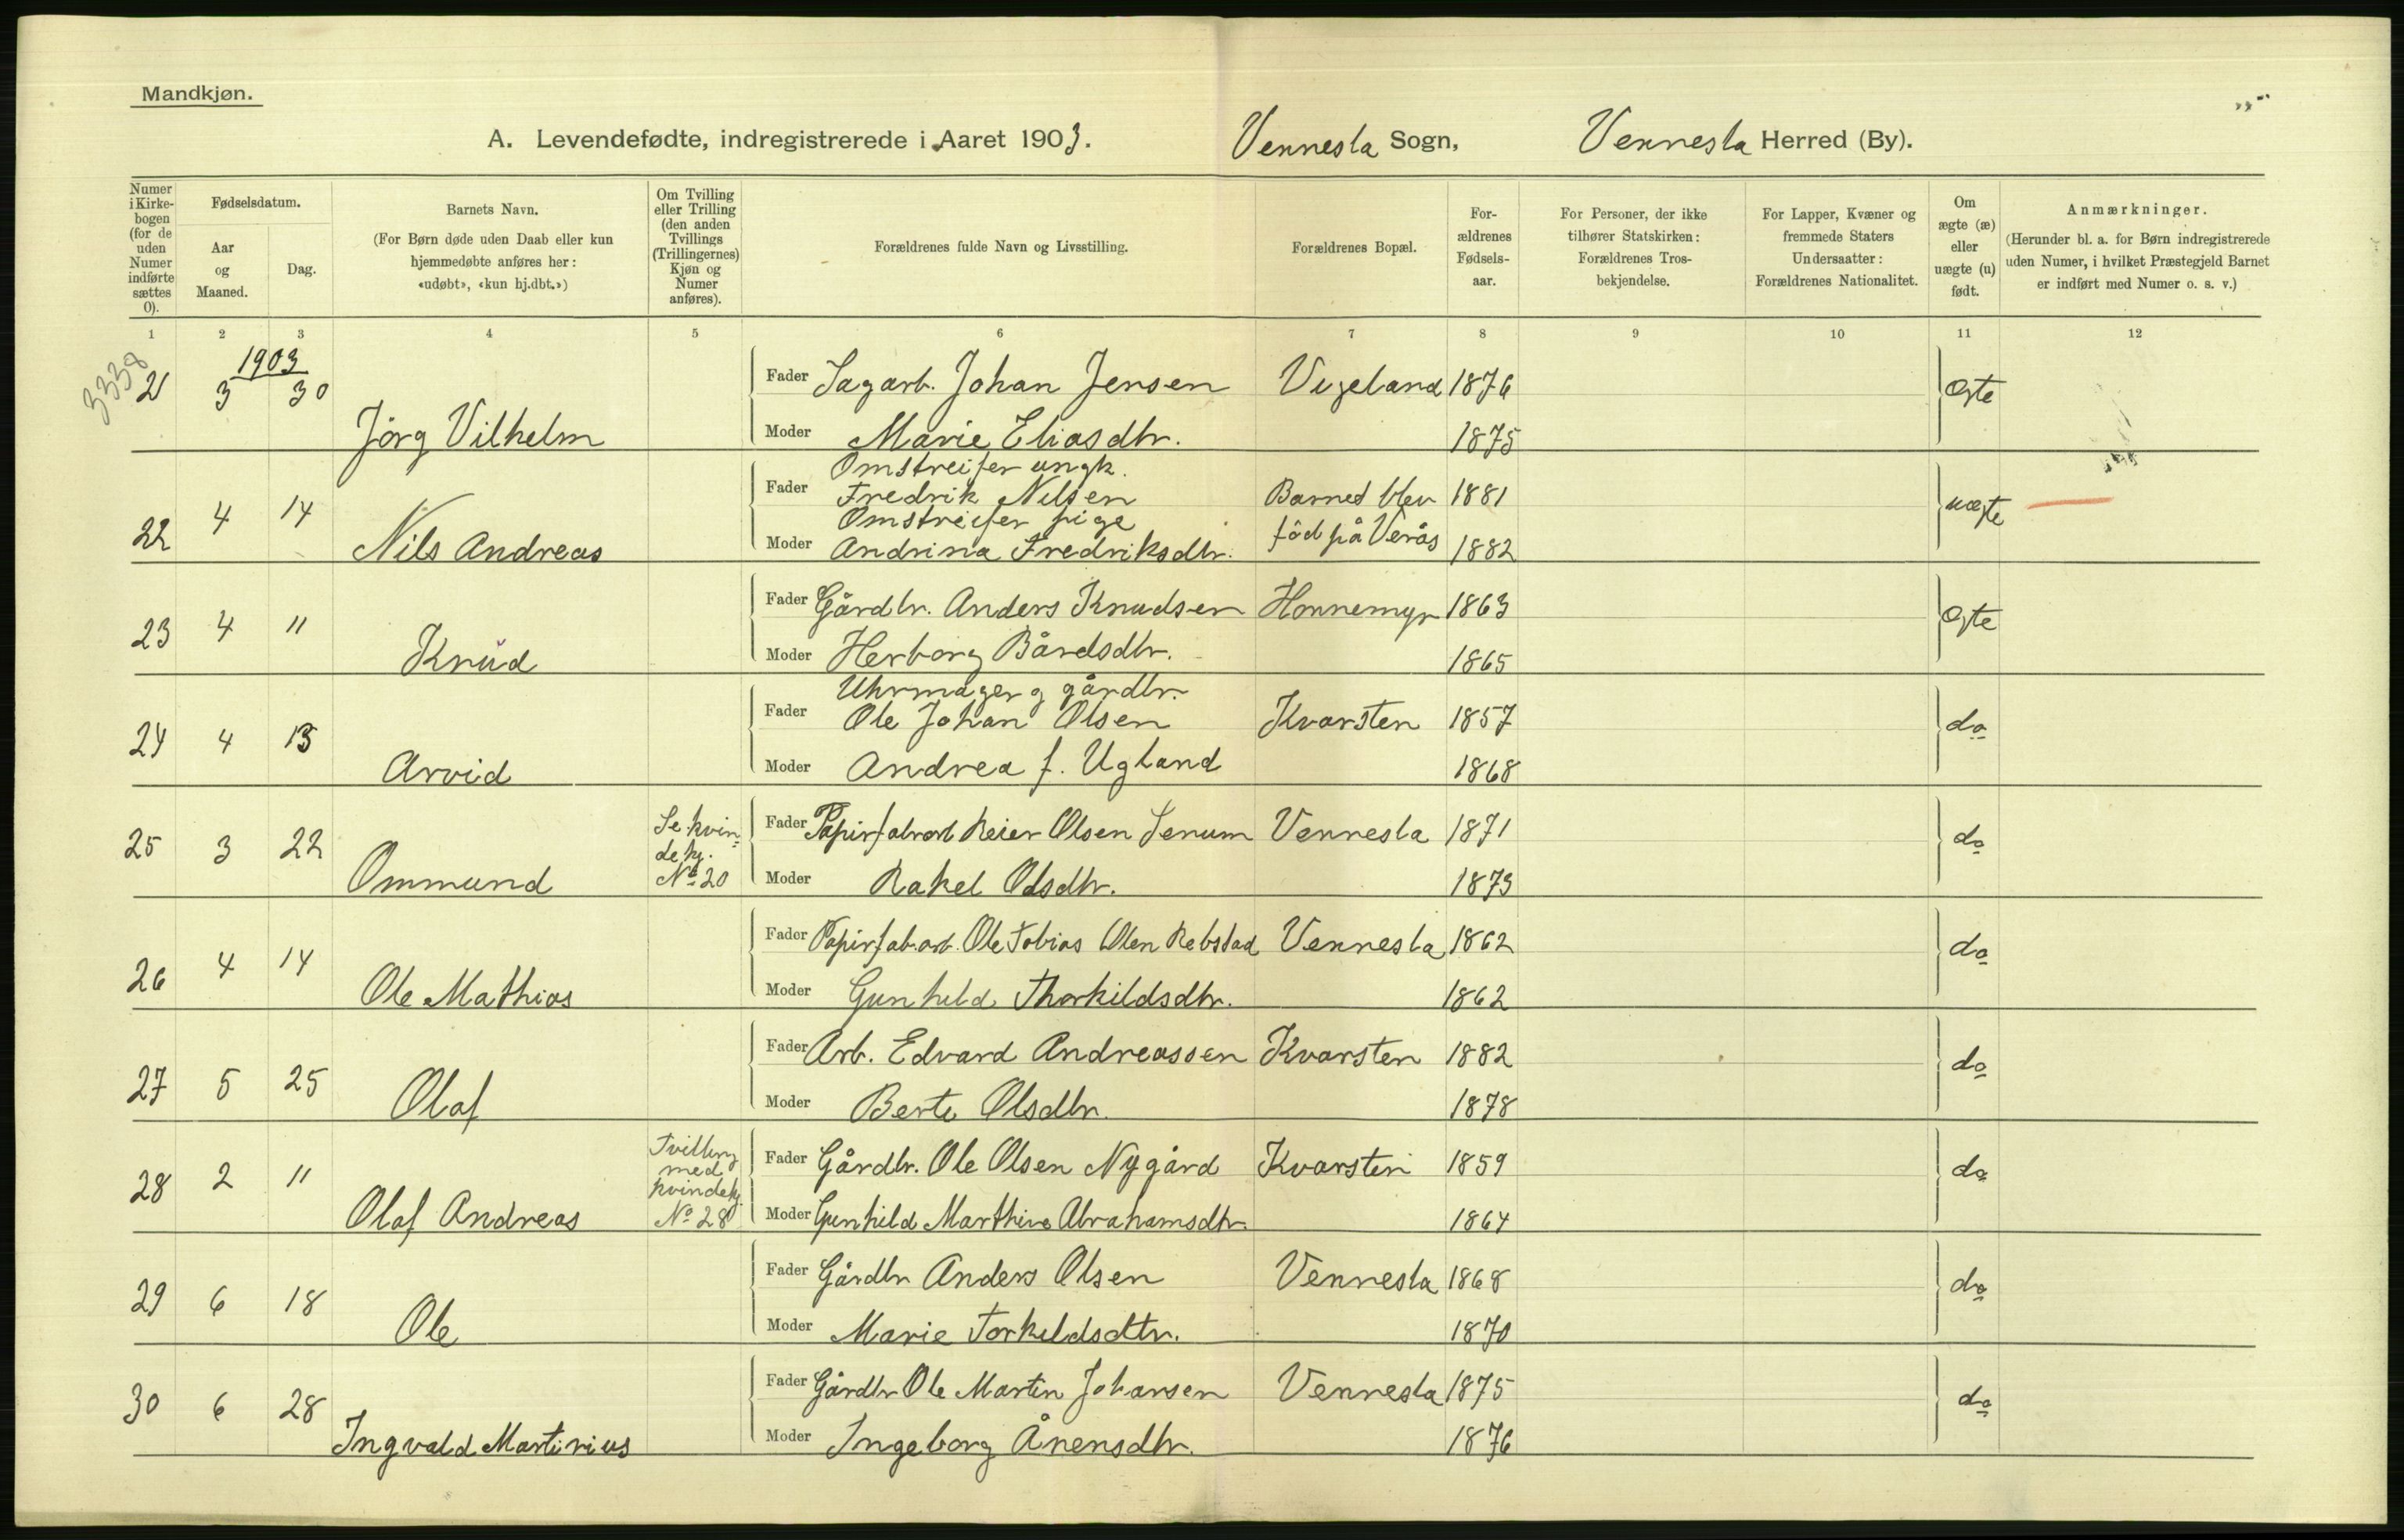 Mandkjøn.
A. Levendefødte, indregistrerede i Aaret 1903. Vennesla Sogn, Vennesla Herred (By).
Numer i Kirkebogen (for de uden Numer indførte sættes 0).
Fødselsdatum.
Aar og Maaned.
Dag.
Barnets Navn.
(For Børn døde uden Daab eller kun hjemmedøbte anføres her: «udøbt», «kun hj.dbt.»)
Om Tvilling eller Trilling (den anden Tvillings (Trillingernes) Kjøn og Numer anføres).
Forældrenes fulde Navn og Livsstilling.
Forældrenes Bopæl.
Forældrenes Fødselsaar.
For Personer, der ikke tilhører Statskirken: Forældrenes Trosbekjendelse.
For Lapper, Kvæner og fremmede Staters Undersaatter: Forældrenes Nationalitet.
Om ægte (æ) eller uægte (u) født.
Anmærkninger.
(Herunder bl. a. for Børn indregistrerede uden Numer, i hvilket Præstegjeld Barnet er indført med Numer o. s. v.)
1 2 3 4 5 6 7 8 9 10 11 12
3338
1903
21 3 30 Jörg Vilhelm Fader Sagarb. Johan Jensen Vigeland 1876 Ægte
Moder Marie Eliasdtr. 1875
Omstreifer ungk.
22 4 14 Nils Andreas Fader Fredrik Nilsen Barnet blev 1881 uægte
Omstreifer pige
Moder Andrina Fredriksdtr. född på Verås 1882
23 4 11 Knud Fader Gårdbr. Anders Knudsen Honnemyr 1863 Ægte
Moder Herborg Bårdsdtr. 1865
Uhrmager g gårdbr.
24 4 13 Arvid Fader Ole Johan Olsen Kvarsten 1857 do
Moder Andrea f. Ugland 1868
25 3 22 Ommund Se kvindekj. No 20 Fader Papirfabrarb Reier Olsen Senum Vennesla 1871 do
Moder Rakel Olsdtr. 1873
26 4 14 Ole Mathias Fader Papirfab.arb. Ole Tobias Olsen Rebstad Vennesla 1862 do
Moder Gunhild Thorkildsdtr. 1862
27 5 25 Olaf Fader Arb. Edvard Andreassen Kvarsten 1882 do
Moder Berte Olsdtr. 1878
28 2 11 Olaf Andreas Tvilling med kvindekj. No 28 Fader Gårdbr. Ole Olsen Nygård Kvarsten 1859 do
Moder Gunhild Marthine Abrahamsdtr. 1864
29 6 18 Ole Fader Gårdbr Anders Olsen Vennesla 1868 do
Moder Marie Torkildsdtr. 1870
30 6 28 Ingvald Martinius Fader Gårdbr Ole Martin Johansen Vennesla 1875 do
Moder Ingeborg Ånensdtr. 1876